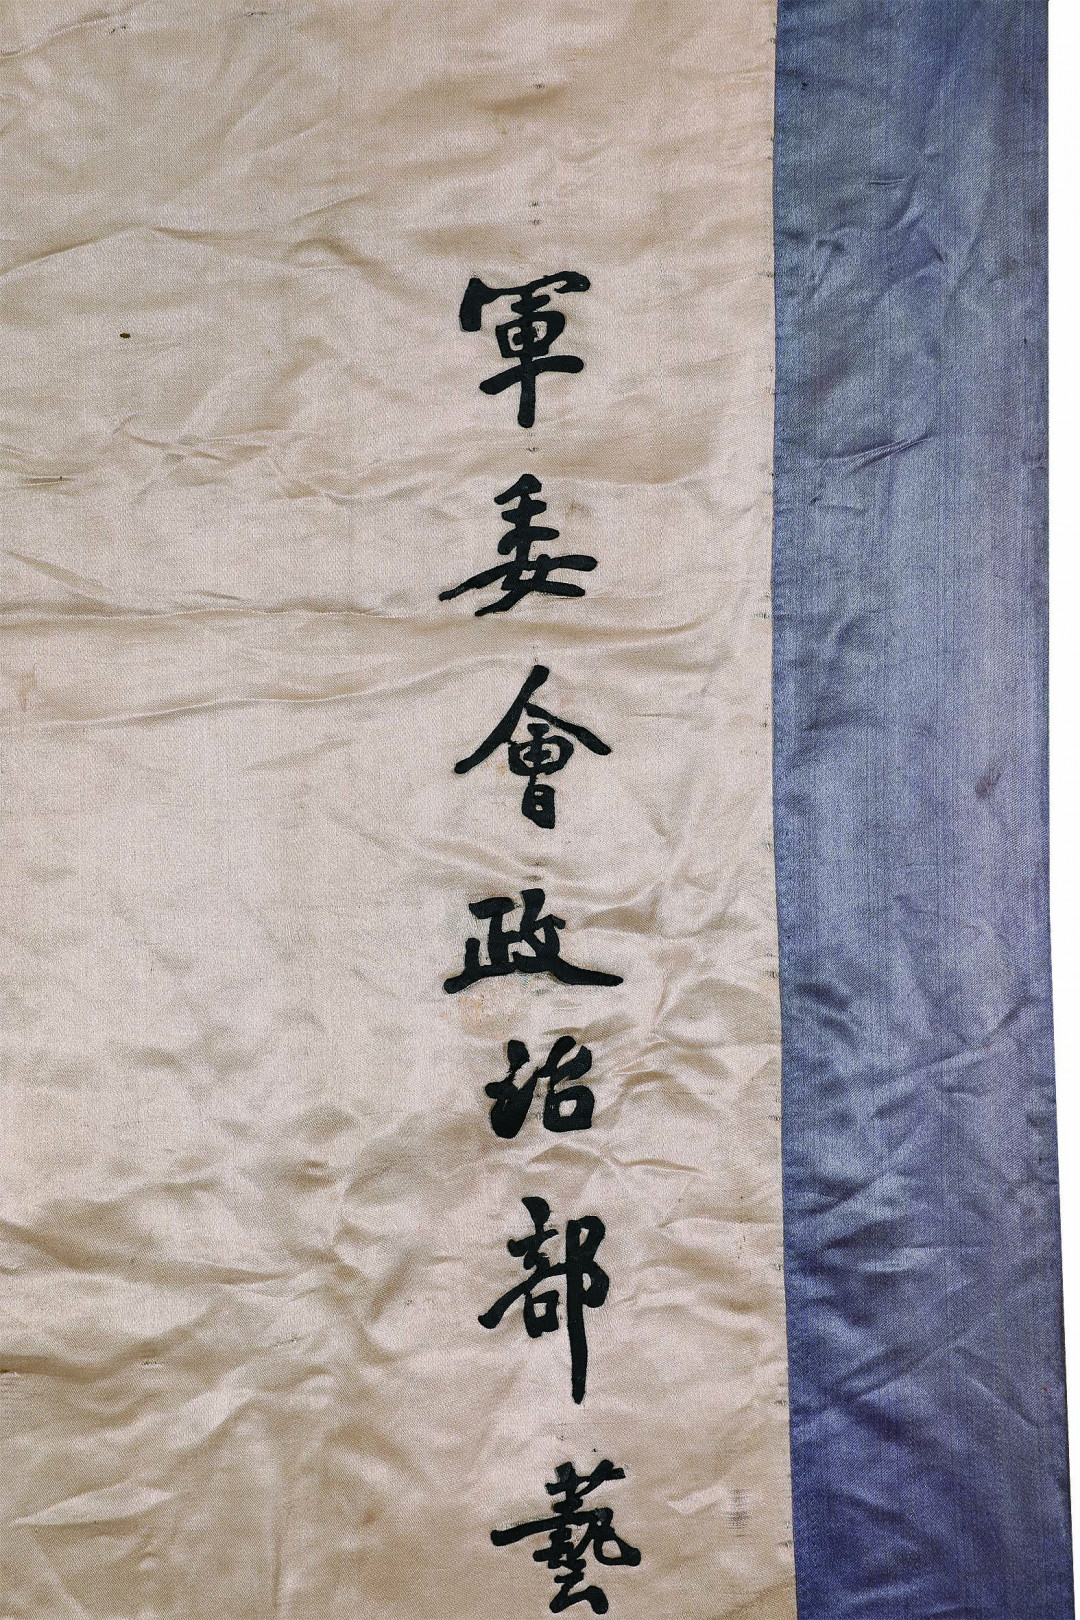 軍委會政治部藝